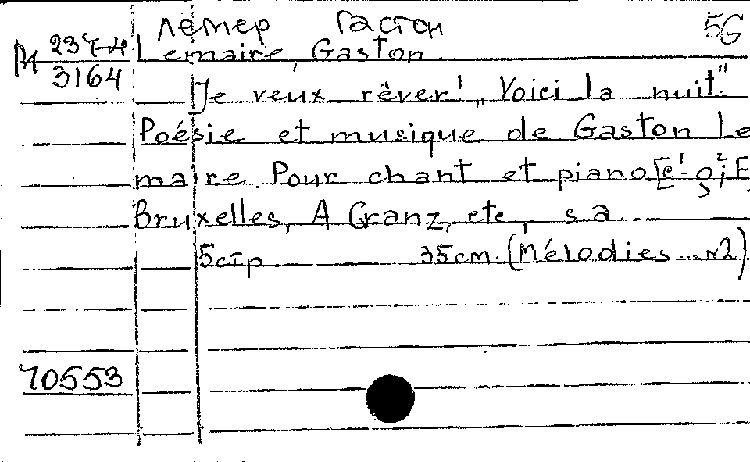 Лемер Гастон 5G
М 237-4 Lemaire, Gaston
3164
Je veux rêver! „Voici la nuit"
Poésie et musique de Gaston Le
maire. Pour chant et piano [e'-g²; E
Bruxelles, A Cranz, etc, s a
5стр 35cm. (Mélodies. N2)
70553